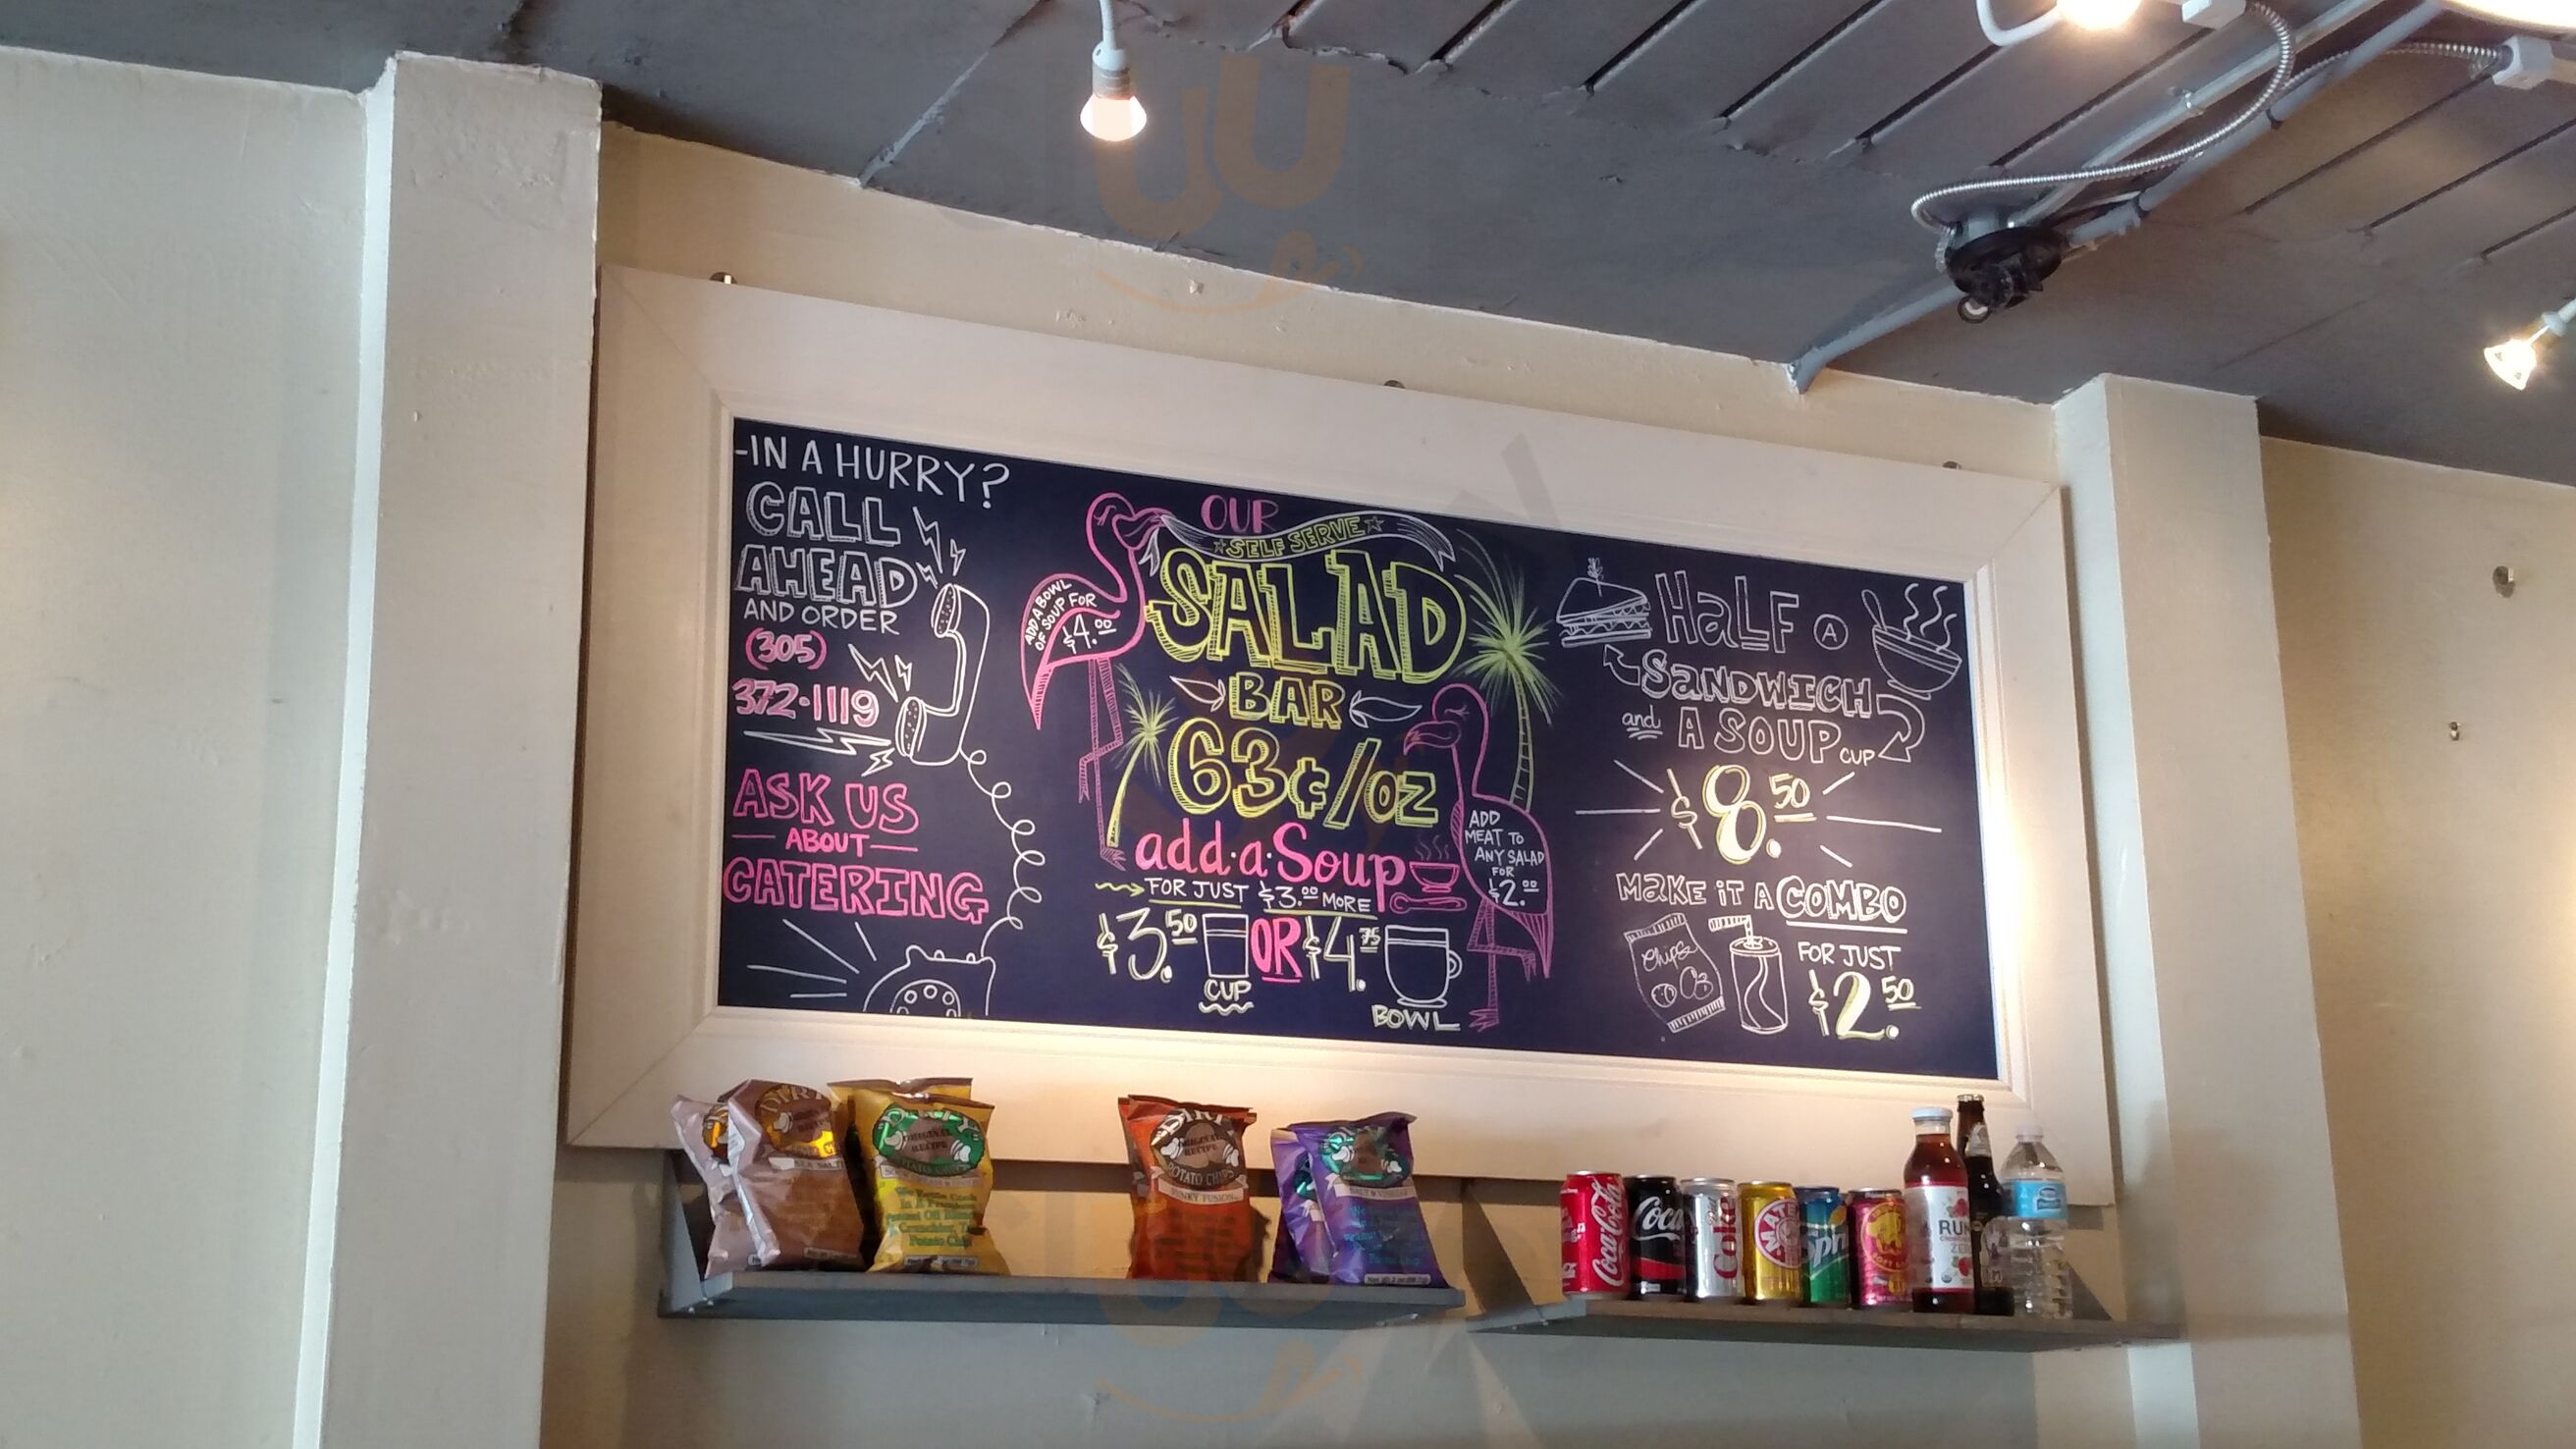 -IN A HURRY?
CALL
AHEAD
AND ORDER
(305)
372·1119
ASK US
ABOUT
CATERING
ADD A BOWL
OF SOUP FOR
$4.00
OUR
SELF SERVE
SALAD
BAR
63¢/OZ
add·a·Soup
FOR JUST $3.00 MORE
$3.50 OR $4.75
CUP
BOWL
ADD
MEAT TO
ANY SALAD
FOR
$2.00
HaLF A
SaNDWICH
and A SOUP CUP
$8.50
MaKE iT A COMBO
Chips
FOR JUST
$2.50
SEA SALT
ORIGINAL
RECIPE
POTATO CHIPS
ORIGINAL
RECIPE
POTATO CHIPS
FUNKY FUSION
Coca-Cola
Coca
Coke
MATE
Sprite